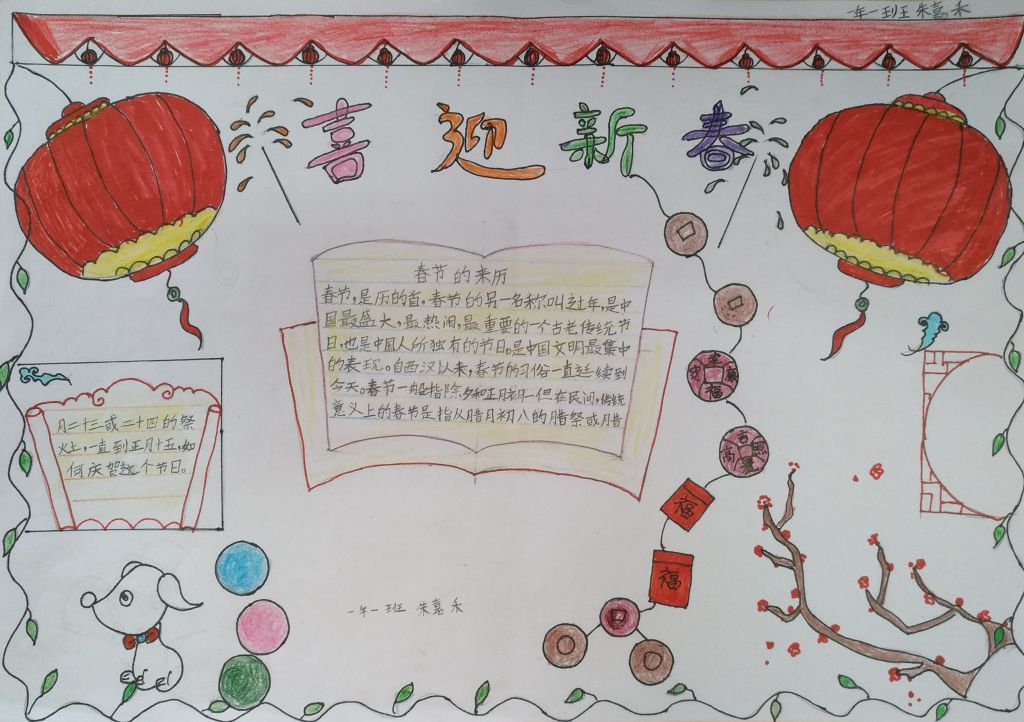 一年一班 朱嘉禾
喜迎新春
春节的来历
春节,是历的首。春节的另一名称叫过年,是中
国最盛大,最热闹,最重要的一个古老传统节
日,也是中国人所独有的节日。是中国文明最集中
的表现。自西汉以来,春节的习俗一直延续到
今天。春节一般指除夕和正月初一但在民间,传统
意义上的春节是指从腊月初八的腊祭或腊
月二十三或二十四的祭
灶,一直到正月十五,如
何庆贺这个节日。
福
福
福
一年一班 朱嘉禾